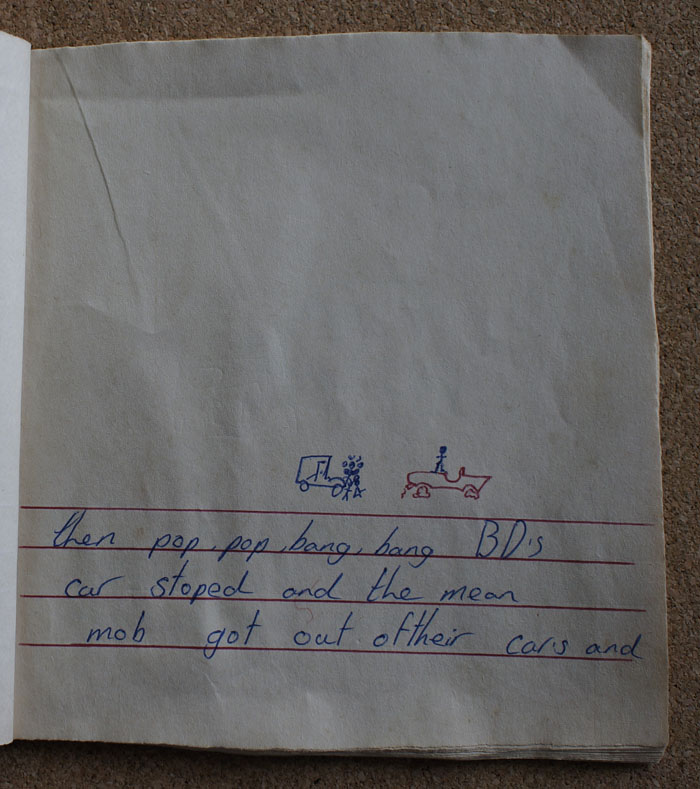 then pop, pop, bang, bang BD's
car stoped and the mean
mob got out oftheir car's and